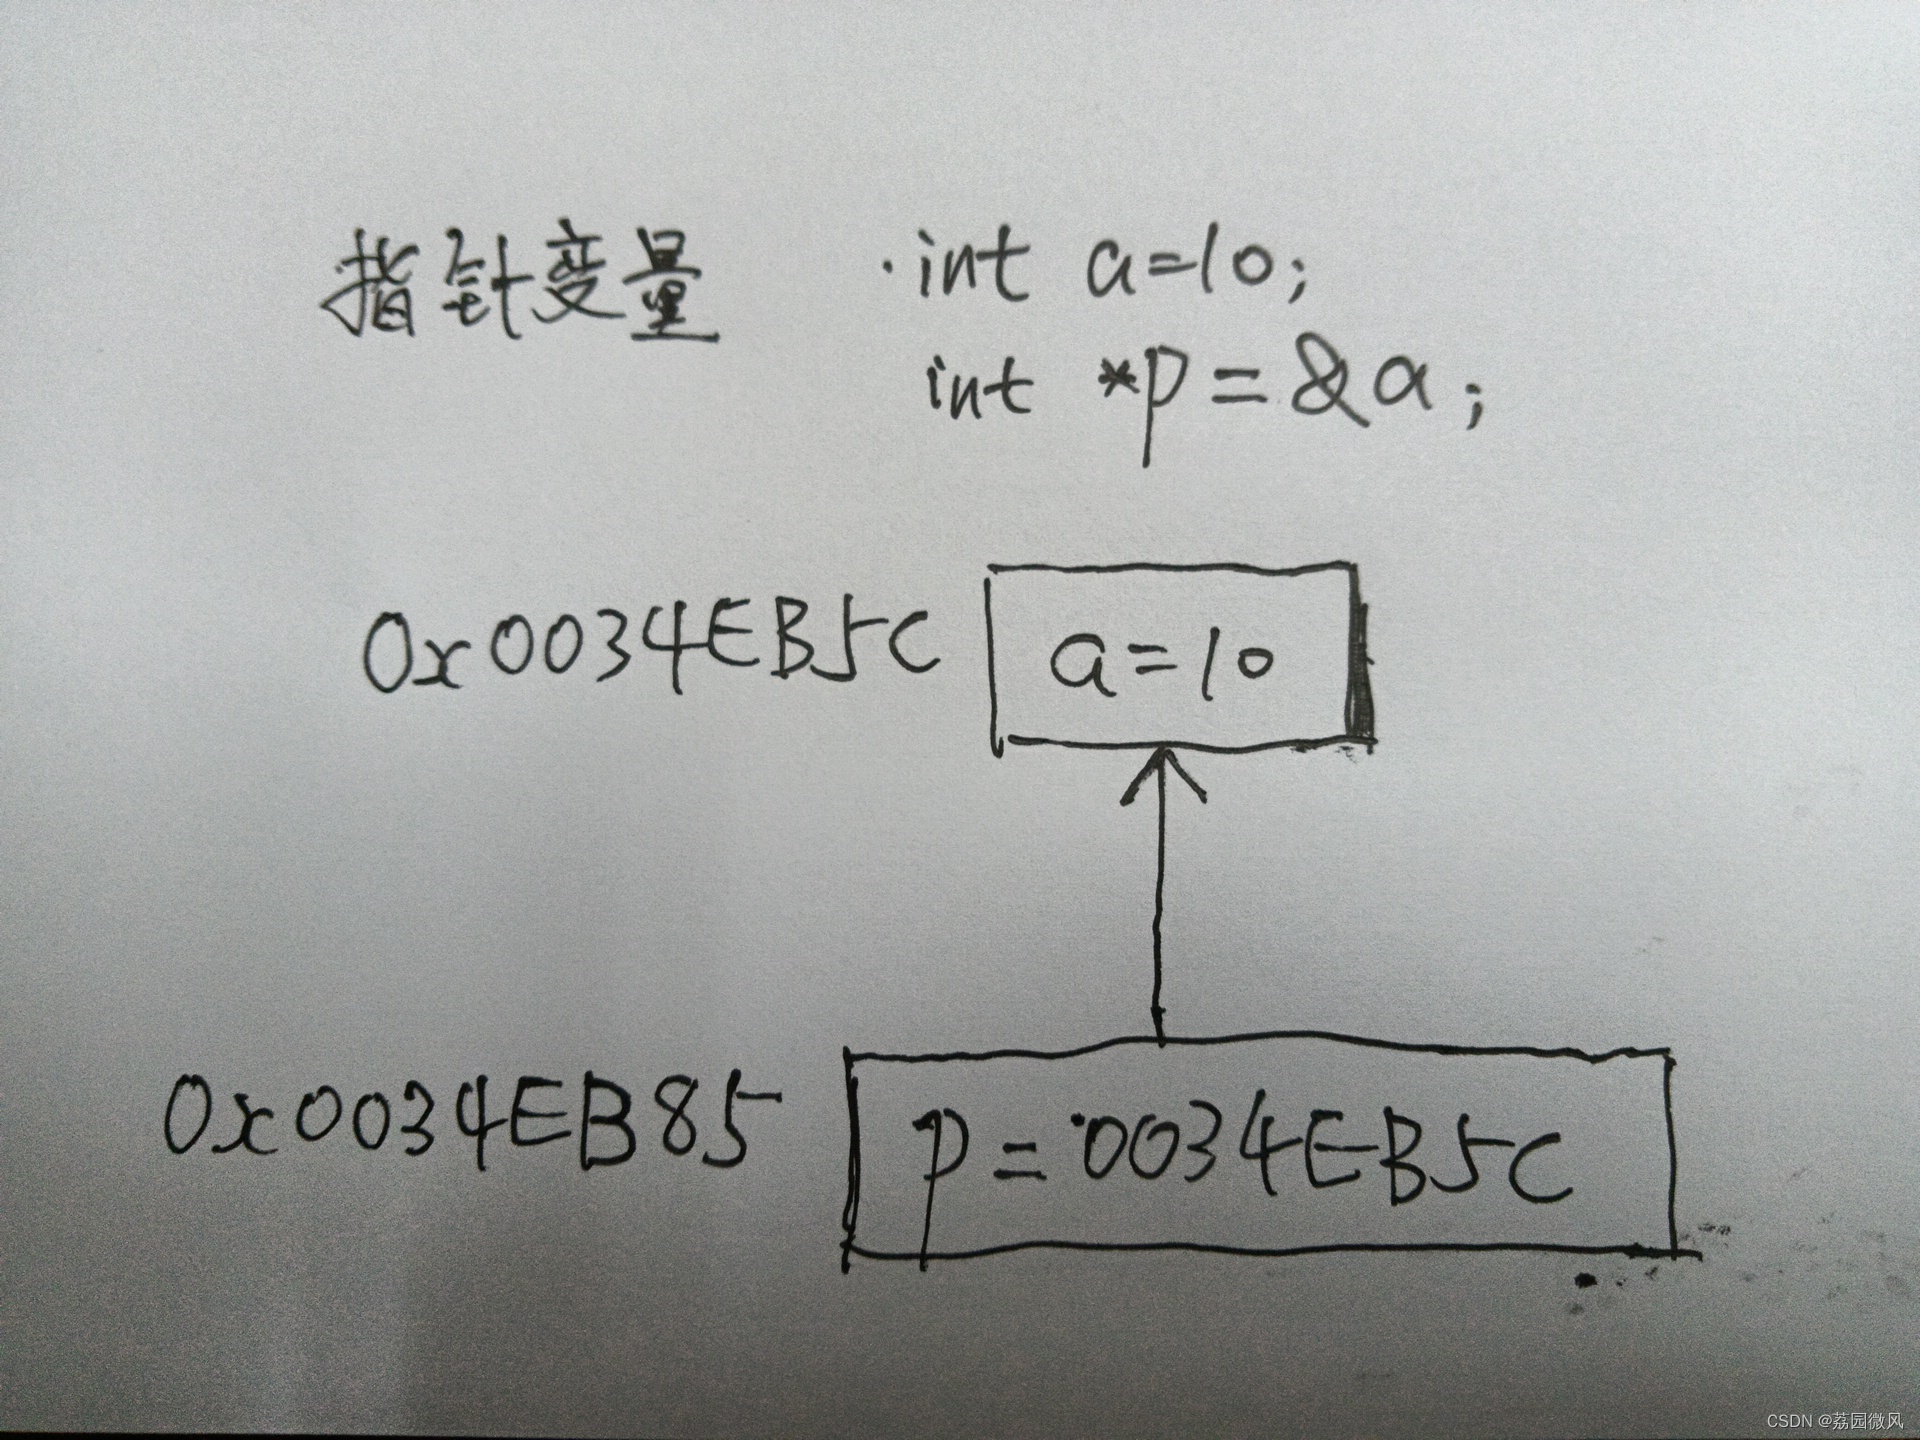 指针变量 int a=10;
int *p = &a;
0x0034EB5C a=10
0x0034EB85 p=0034EB5C
CSDN @荔园微风